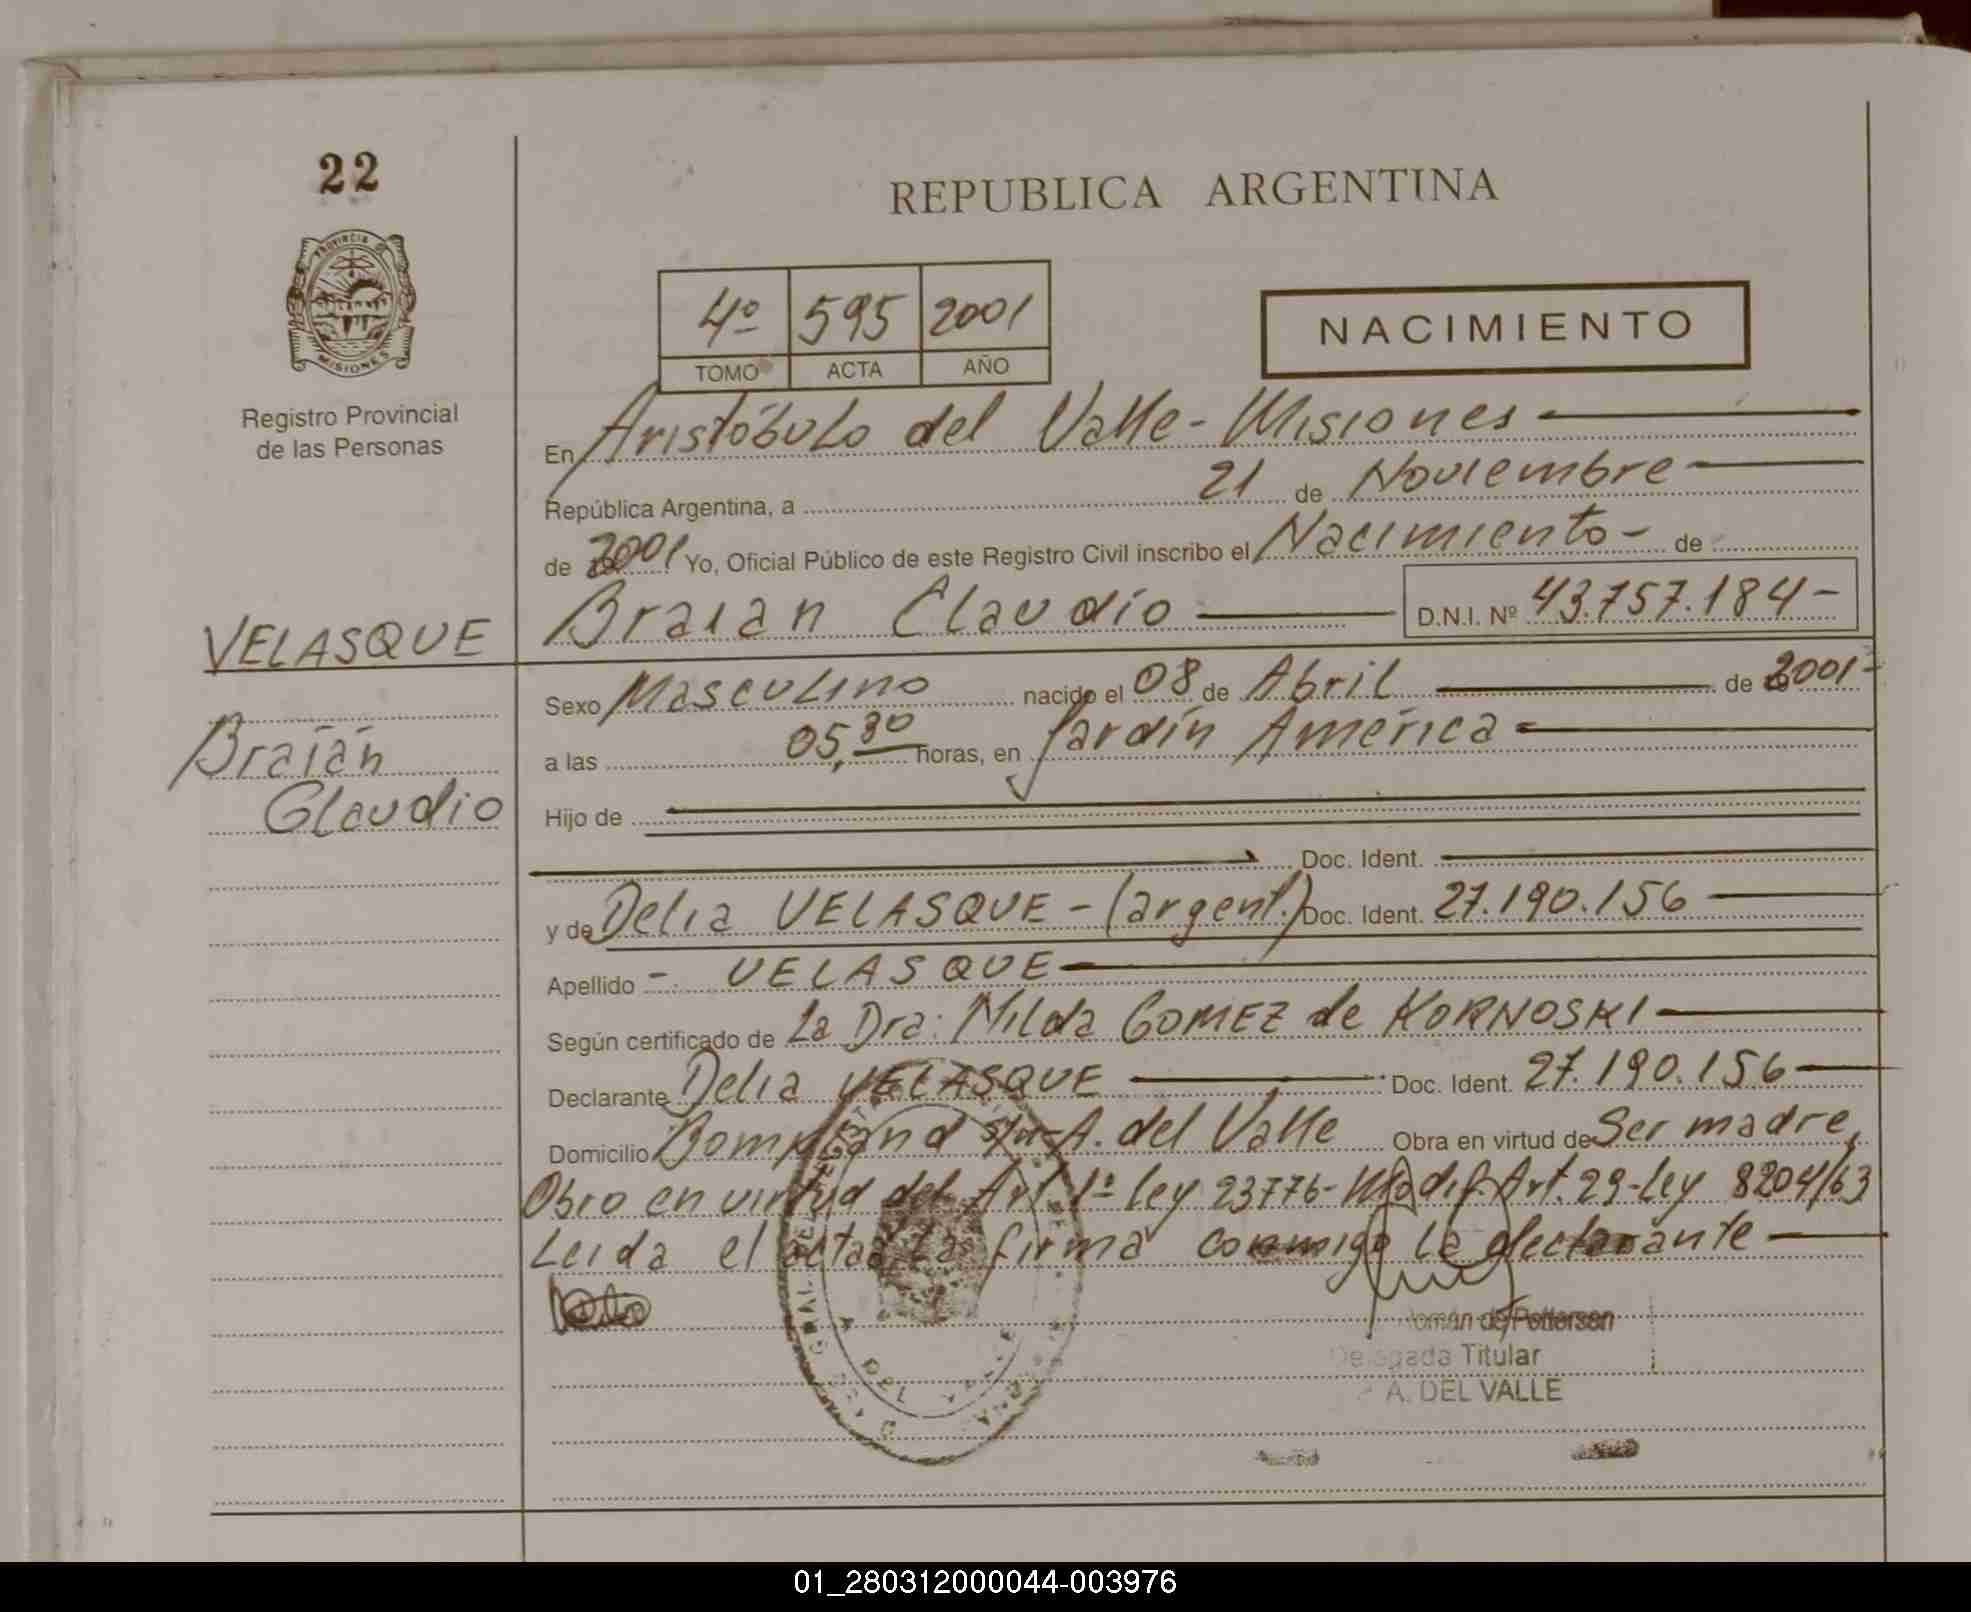 22
PROVINCIA DE
MISIONES
Registro Provincial
de las Personas
VELASQUE
Braian
Claudio
REPUBLICA ARGENTINA
4º 595 2001
TOMO ACTA AÑO
NACIMIENTO
En Aristóbulo del Valle - Misiones
República Argentina, a 21 de Noviembre
de 2001 Yo, Oficial Público de este Registro Civil inscribo el Nacimiento - de
Braian Claudio D.N.I. Nº 43.757.184-
Sexo Masculino nacido el 08 de Abril de 2001-
a las 05,30 horas, en Jardín América
Hijo de
Doc. Ident.
y de Delia VELASQUE - (argent.) Doc. Ident. 27.190.156
Apellido - VELASQUE
Según certificado de La Dra: Milda GOMEZ de KORNOSKI
Declarante Delia VELASQUE Doc. Ident. 27.190.156
Domicilio Bompland s/n - A. del Valle Obra en virtud de Ser madre,
Obro en virtud del Art 1º Ley 23776 - Modif. Art. 29 - Ley 8204/63
Leida el acta firma conmigo la declarante
de Pottersen
Delegada Titular
A. DEL VALLE
01_280312000044-003976